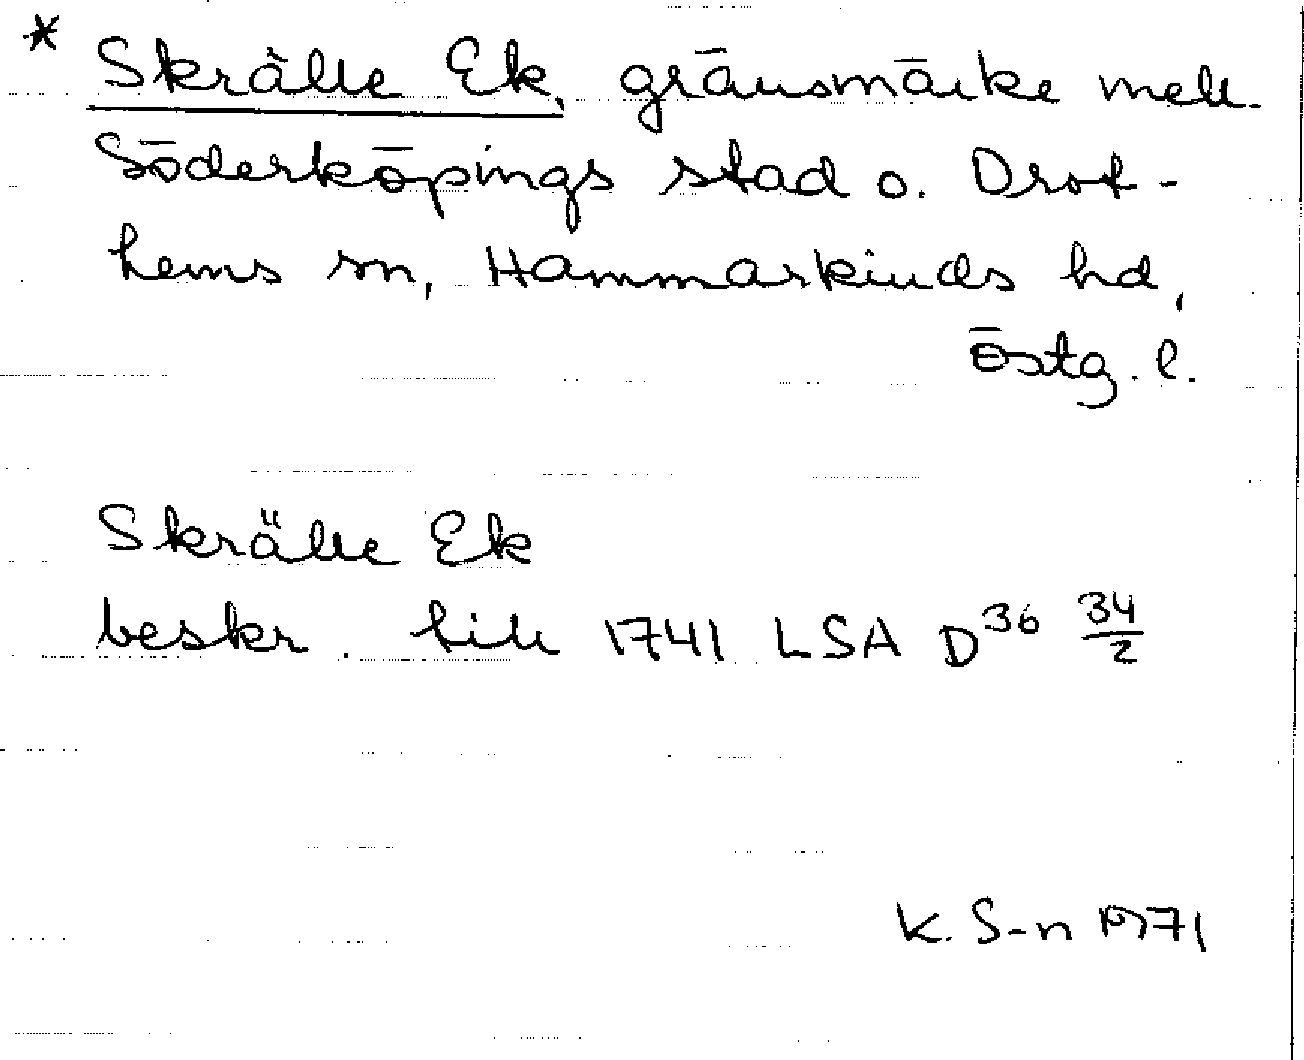 * Skrälle Ek, gränsmärke mell.
Söderköpings stad o. Drot-
hems sn, Hammarkinds hd,
Östg. l.
Skrälle Ek
beskr. till 1741 LSA D³⁶ 34/2
K. S-n 1971